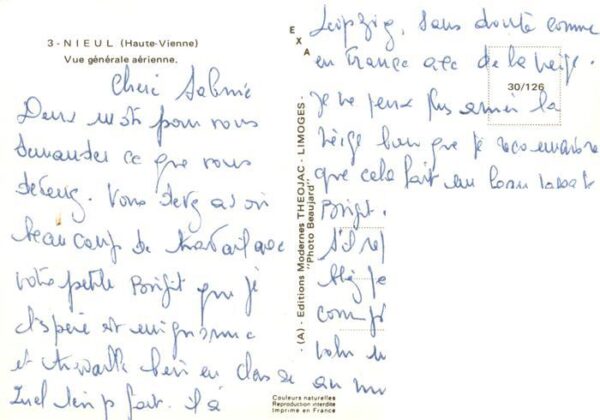 3 - NIEUL (Haute-Vienne)
Vue générale aérienne.
Cheri Sabine
Deux mots pour vous
demander ce que vous
devenez. Vous devez avoir
beaucoup de travail avec
votre petite Birgit que j'
espère est mignonne
et travaille bien en classe
Quel temps fait-il à
E X A
- (A) - Editions Modernes THEOJAC - LIMOGES -
"Photo Beaujard"
Couleurs naturelles
Reproduction interdite
Imprimé en France
30/126
Leipzig, sans doute comme
en France avec de la neige.
Je ne peux plus aimer la
neige bien que je reconnaisse
que cela fait un beau
Birgit.
S'il
je
comp
votre
au